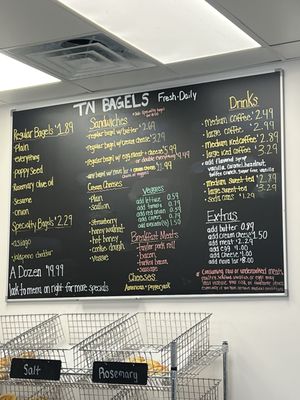 TN BAGELS Fresh Daily
Regular Bagels $1.89
Plain
everything
poppy seed
Rosemary olive oil
Sesame
onion
Specialty Bagels $2.29
asiago
jalapeno cheddar
A Dozen $19.99
look to menu on right for more specials
Sandwiches
regular bagel w/ butter $2.69
regular bagel w/ cream cheese $3.29
regular bagel w/ egg meat + cheese $5.99
Cream Cheeses
Plain
scallion
Strawberry
honey walnut
hot honey
veggie
Veggies
add lettuce 0.59
add tomato 0.79
add red onion 0.59
add capers 0.79
add avocado 1.50
Breakfast Meats
taylor pork roll
bacon
turkey bacon
sausage
Cheeses
American + pepperjack
Drinks
medium coffee $2.49
large coffee $2.99
medium iced coffee $2.89
large iced coffee $3.29
add flavored syrup
vanilla, caramel, hazelnut,
medium sweet tea $2.89
large sweet tea $3.29
soda cans $1.29
Extras
add butter 0.89
add cream cheese $1.50
add meat $2.29
add egg $2.00
add cheese $1.00
add nova lox $8.00
Salt
Rosemary